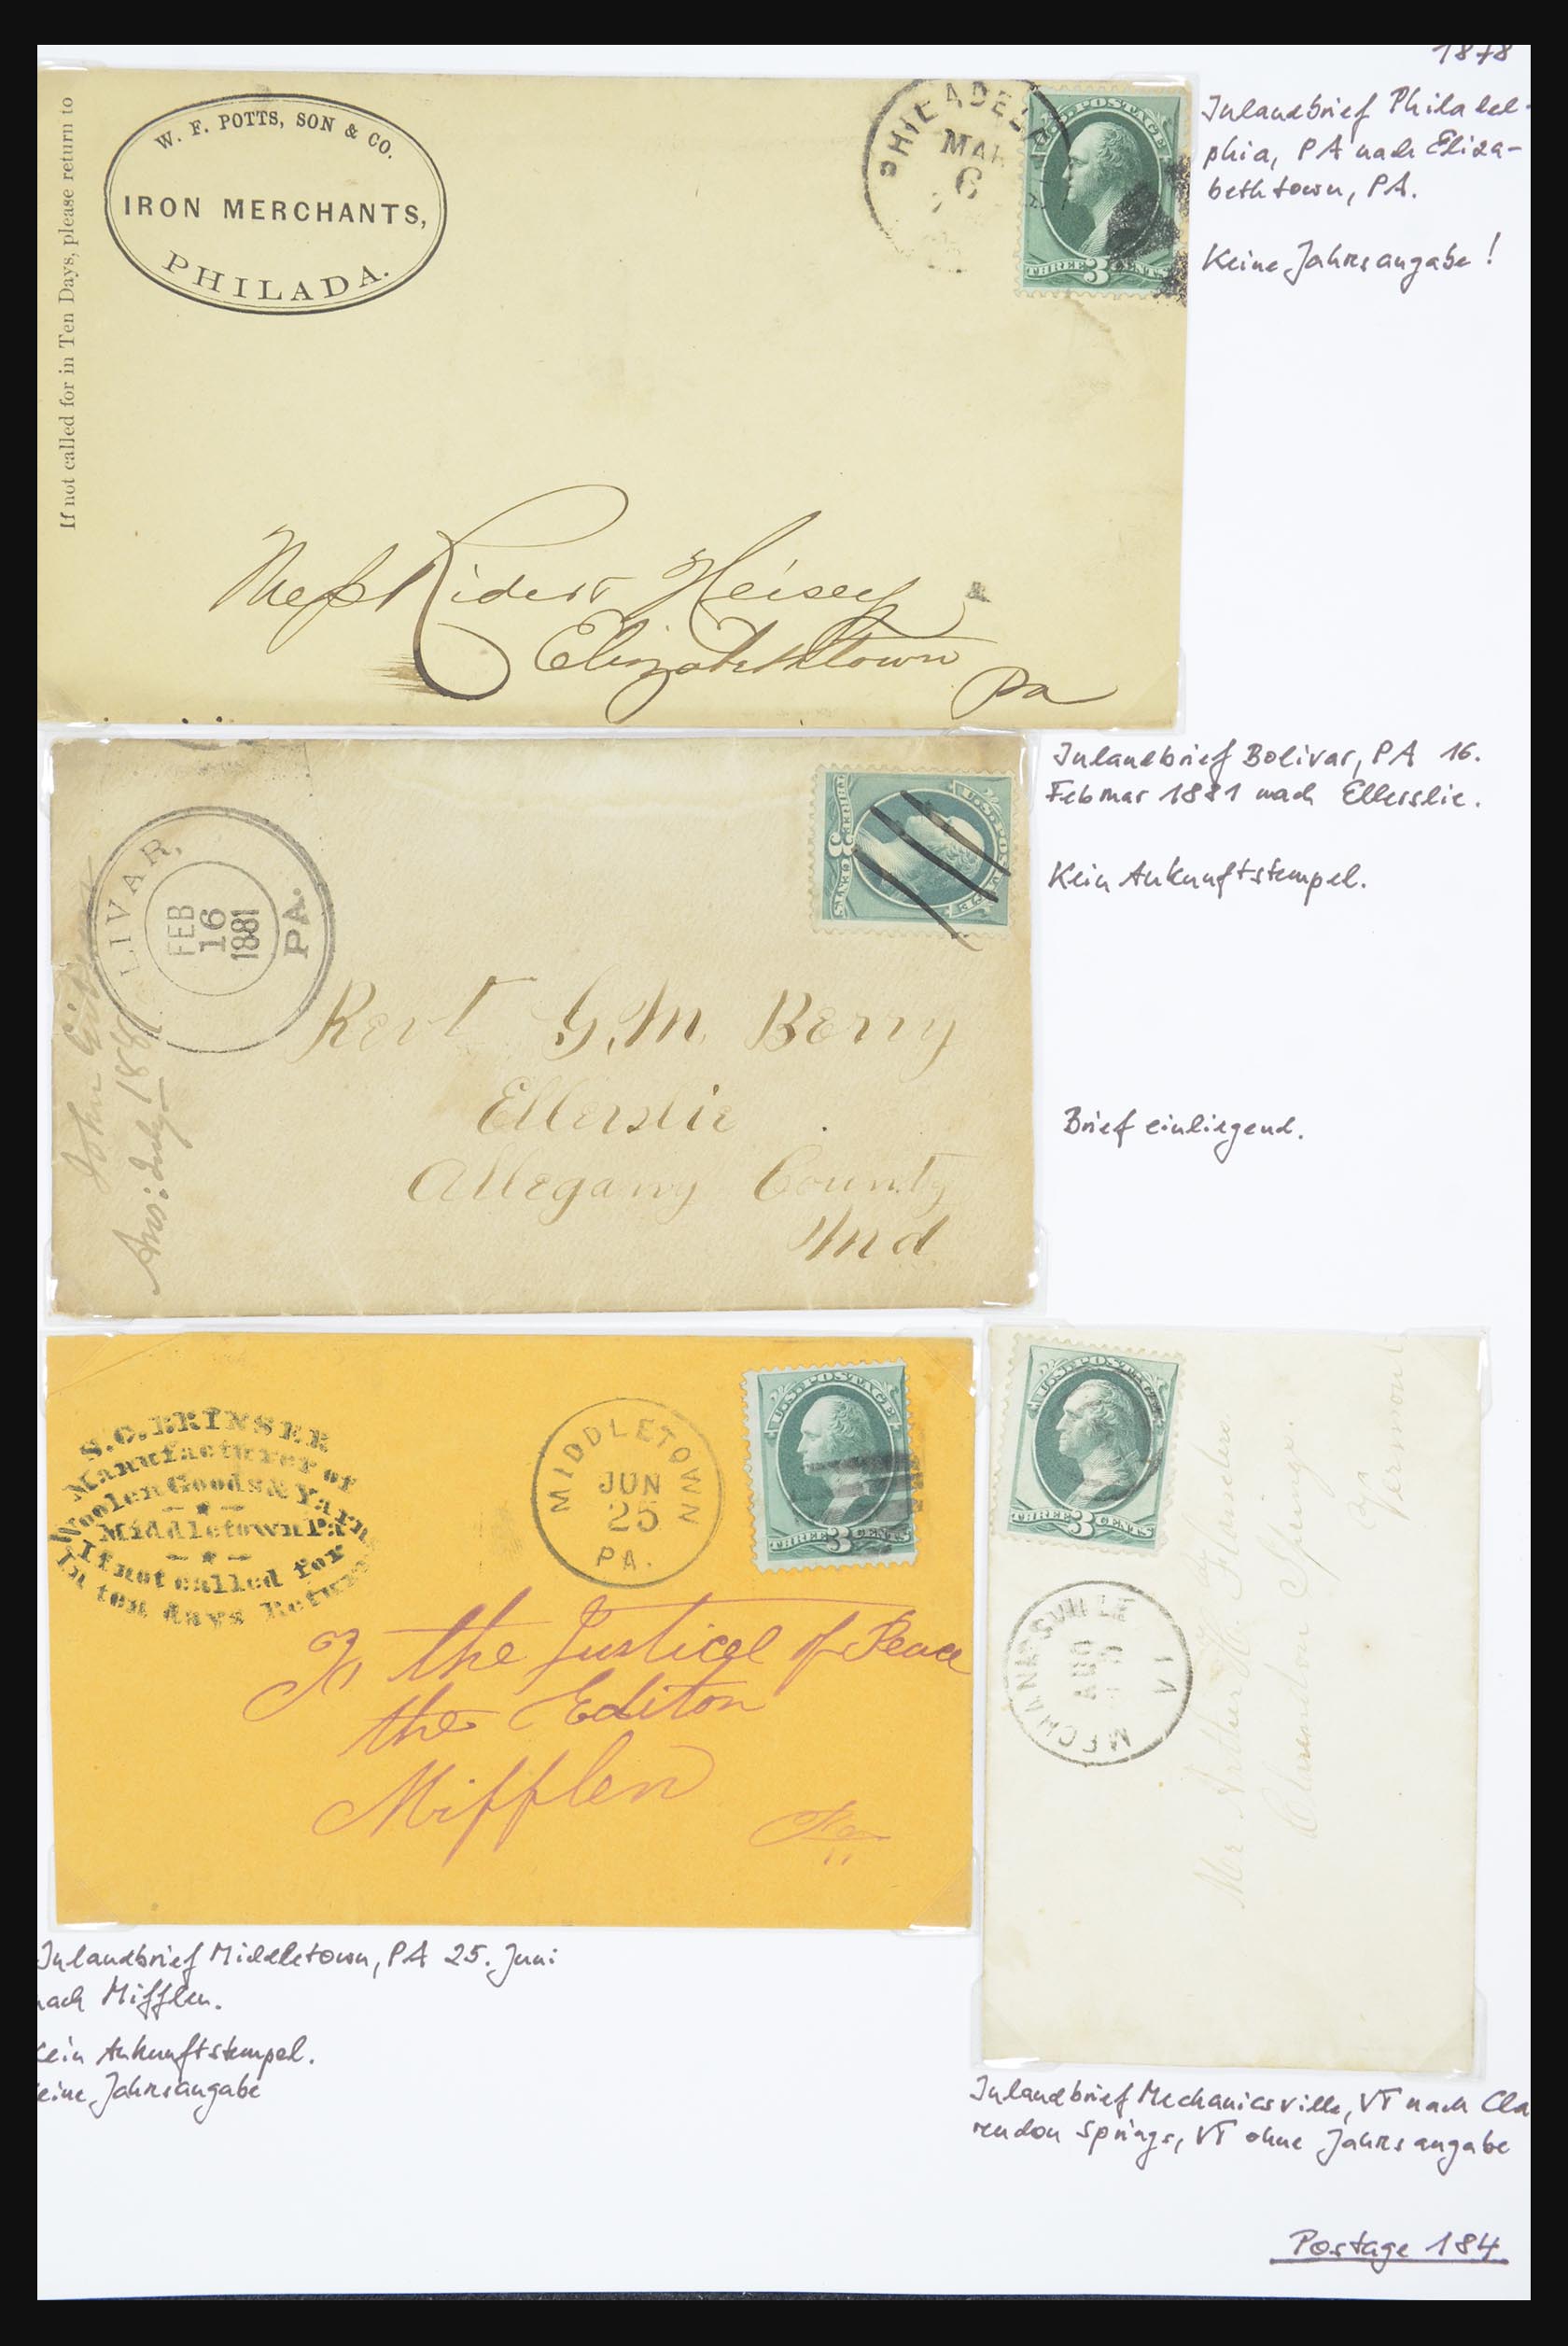 1878
If not called for in Ten Days, please return to
W. F. POTTS, SON & CO.
IRON MERCHANTS,
PHILADA.
PHILADELP
MAR
6
U.S. POSTAGE
THREE 3 CENTS
Mess Rider Heisey
Elizabethtown
Pa
Inlandbrief Philadel-
phia, PA nach Eliza-
bethtown, PA.
Keine Jahresangabe!
LIVAR,
PA.
FEB
16
1881
U.S. POST
THREE 3 CENTS
John
Ans: July 188
Revd G. M. Berry
Ellerslie
Allegany County
Md
Inlandbrief Bolivar, PA 16.
Februar 1881 nach Ellerslie.
Kein Ankunftstempel.
Brief einliegend.
S. C. BRINSER
Manufacturer of
Woolen Goods & Yarns
Middletown Pa
If not called for
In ten days Return
MIDDLETOWN
JUN
25
PA.
U.S. POSTAGE
THREE 3 CENTS
To the Justicel of Peace
the Editon
Mifflen
Pa
Inlandbrief Middletown, PA 25. Juni
nach Mifflen.
Kein Ankunftstempel.
eine Jahresangabe
U.S. POSTAGE
THREE 3 CENTS
MECHANICSVILLE
AUG
Mr Arthur
Clarendon Springs.
Vermont
Inlandbrief Mechanicsville, VT nach Cla
rendon Springs, VT ohne Jahresangabe
Postage 184